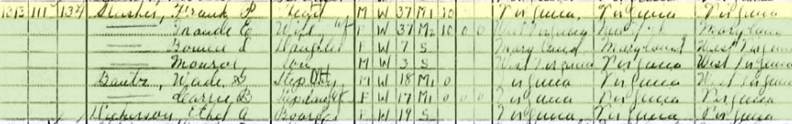 1013 111 134 Slusher, Frank P Head M W 37 M1 10 Virginia Virginia Virginia
Wife F W 37 M2 10 0 0 West Virginia Maryland
Bonnie L Daughter F W 7 S Maryland Maryland West Virginia
Monroe Son M W 3 S West Virginia Virginia West Virginia
Wade M W 18 M1 0 Virginia Virginia West Virginia
Carrie B F W 17 M1 0 0 0 Virginia Virginia Virginia
Dickerson, Ethel A Boarder F W 19 S Virginia Virginia Virginia